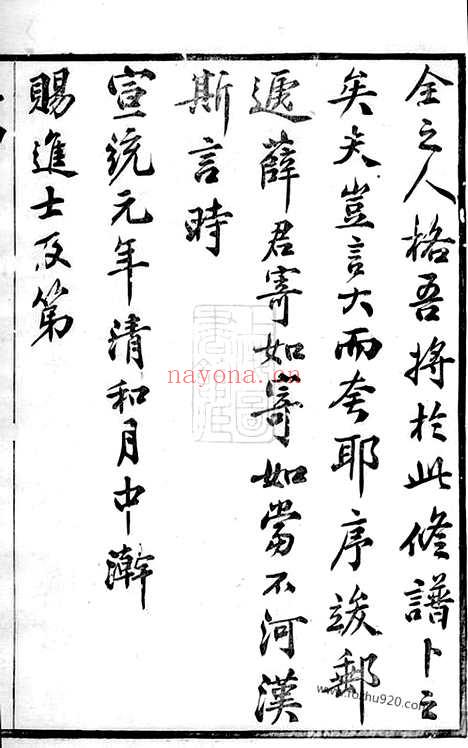 全之人格吾將於此修譜卜之
矣夫豈言大而夸耶序竣郵
遞薛君寄如寄如當不河漢
斯言時
宣統元年清和月中澣
賜進士及第
nayona.cn
www.fozhu920.com